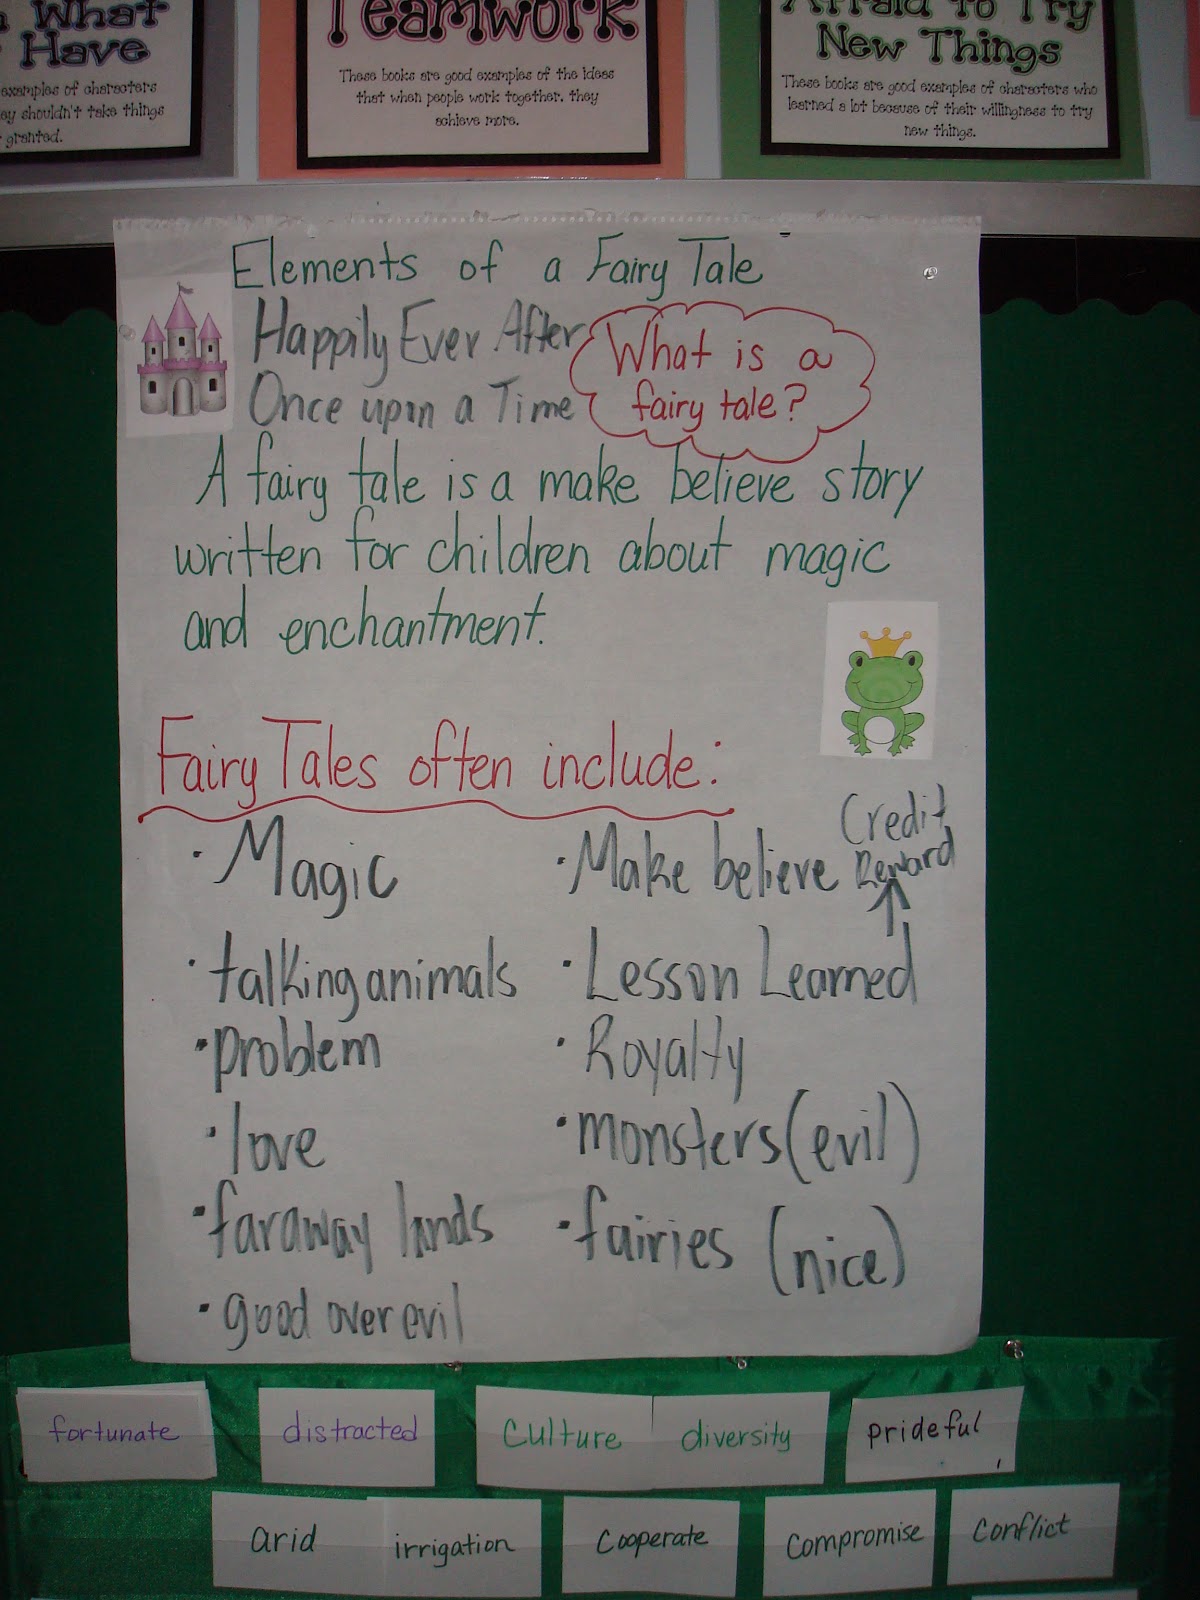 What
Have
examples of characters
ey shouldn't take things
granted.
Teamwork
These books are good examples of the ideas
that when people work together, they
achieve more.
Afraid to Try
New Things
These books are good examples of characters who
learned a lot because of their willingness to try
new things.
Elements of a Fairy Tale
Happily Ever After
Once upon a Time
What is a
fairy tale?
A fairy tale is a make believe story
written for children about magic
and enchantment.
Fairy Tales often include:
· Magic
· talking animals
· problem
· love
· faraway lands
· good over evil
· Make believe
Credit
Reward
· Lesson Learned
· Royalty
· monsters (evil)
· fairies (nice)
fortunate
distracted
culture
diversity
prideful
arid
irrigation
cooperate
compromise
conflict